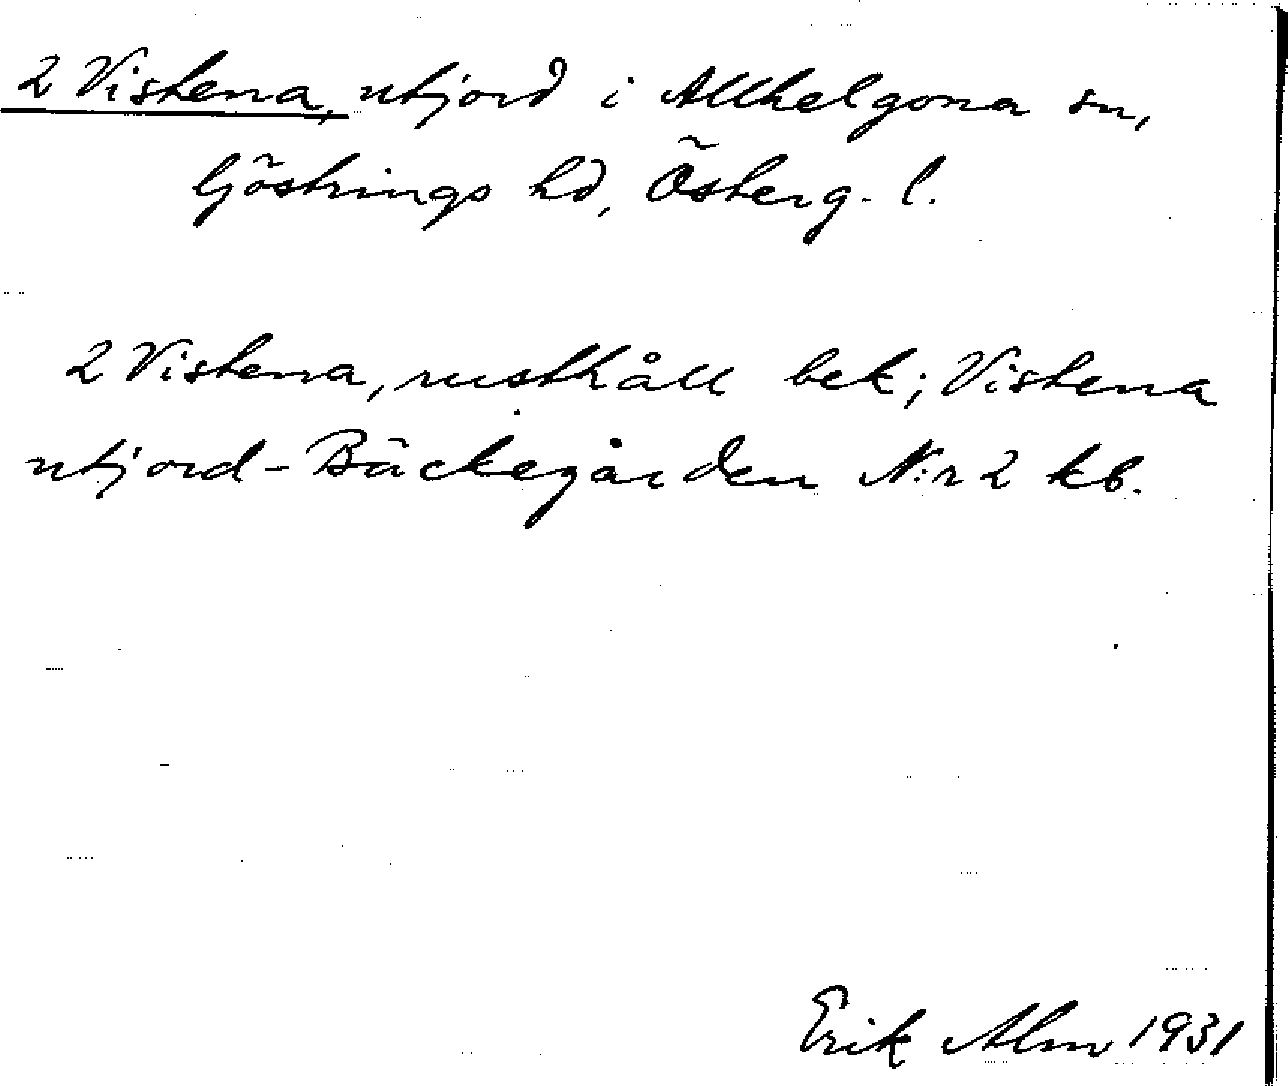 2 Vistena, utjord i Allhelgona sn,
Göstrings hd, Österg. l.
2 Vistena, rusthåll bek; Vistena
utjord - Bäckegården N:r 2 kb.
Erik Alm 1931